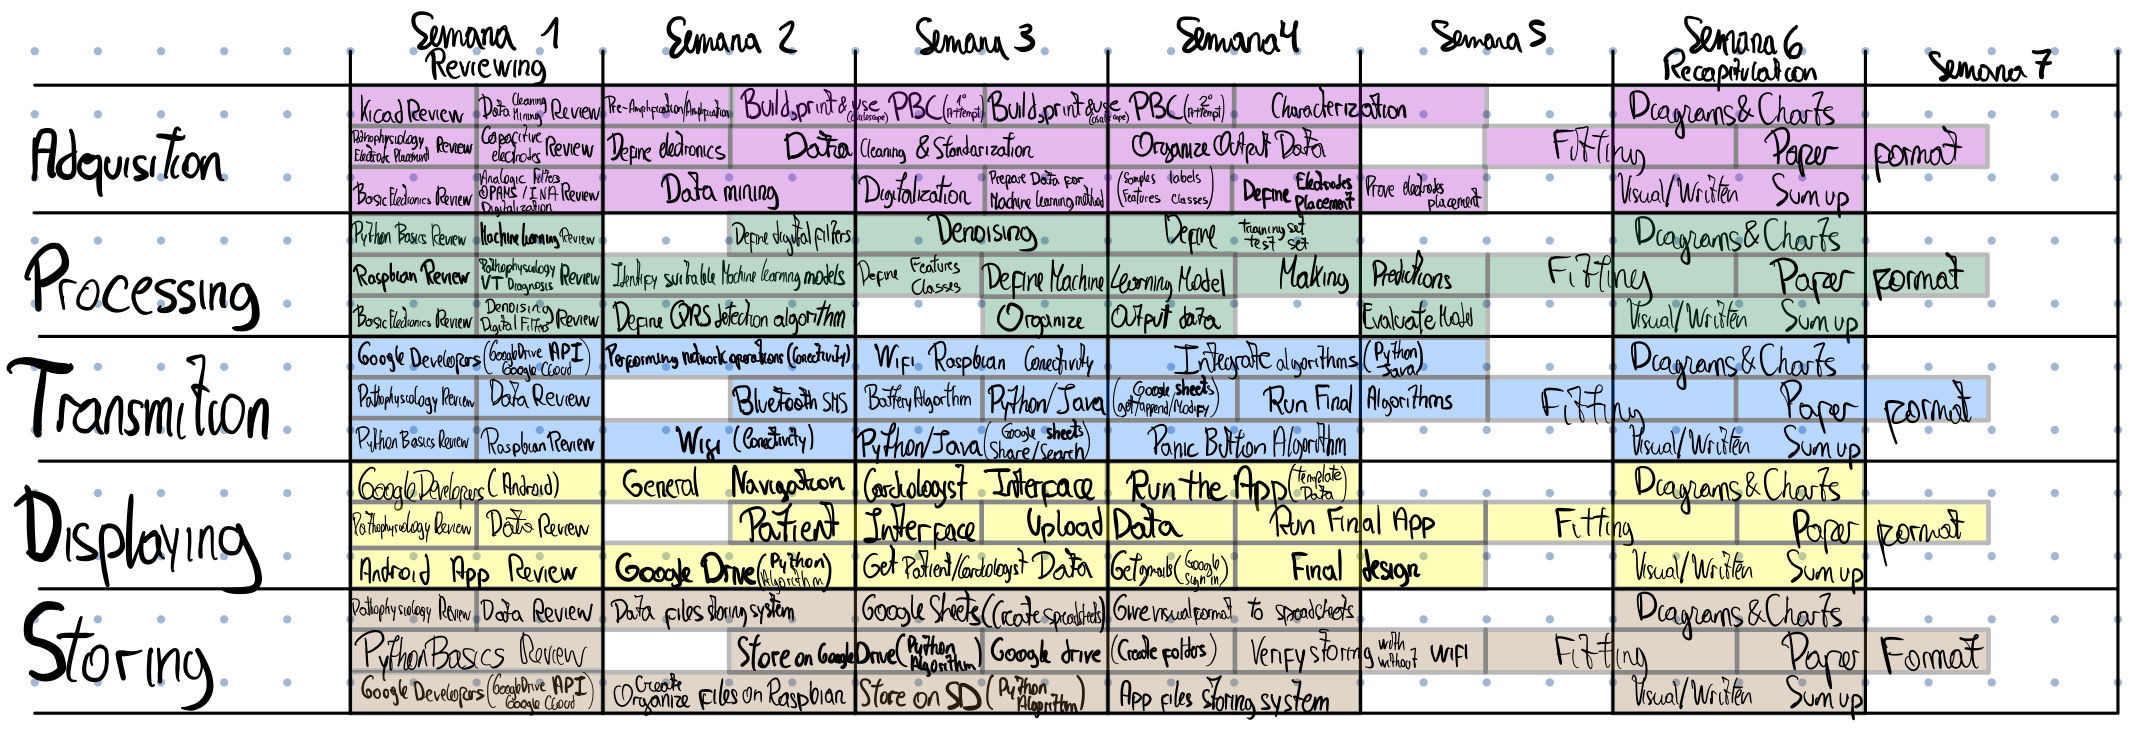 Semana 1 Semana 2 Semana 3 Semana 4 Semana 5 Semana 6 Semana 7
Reviewing Recapitulation
Adquisition
Kicad Review Data Cleaning Mining Review Pre-Amplification/Amplification Build, print & use PBC (1° Attempt) Build, print & use PBC (2° Attempt) Characterization Diagrams & Charts
Pathophysiology Electrode Placement Review Capacitive electrodes Review Define electronics Data Cleaning & Standarization Organize Output Data Fitting Paper format
Basic Electronics Review Analogic Filters OPAMS / INA Digitalization Review Data mining Digitalization Prepare Data for Machine learning method (Samples labels Features classes) Define Electrodes Placement Prove electrodes placement Visual/Written Sum up
Processing
Python Basics Review Machine learning Review Define digital filters Denoising Define training set test set Diagrams & Charts
Raspbian Review Pathophysiology VT Diagnosis Review Identify suitable Machine learning models Define Features Classes Define Machine Learning Model Making Predictions Fitting Paper format
Basic Electronics Review Denoising Digital Filters Review Define QRS detection algorithm Organize Output data Evaluate Model Visual/Written Sum up
Transmition
Google Developers (Google Drive API Google Cloud) Performing network operations (Conectivity) Wifi Raspbian Conectivity Integrate algorithms (Python Java) Diagrams & Charts
Pathophysiology Review Data Review Bluetooth SMS Battery Algorithm Python/Java (Google sheets get/append/Modify) Run Final Algorithms Fitting Paper format
Python Basics Review Raspbian Review Wifi (Conectivity) Python/Java (Google sheets Share/Search) Panic Button Algorithm Visual/Written Sum up
Displaying
Google Developers (Android) General Navigation Cardiologist Interface Run the App (Template Data) Diagrams & Charts
Pathophysiology Review Data Review Patient Interface Upload Data Run Final App Fitting Paper format
Android App Review Google Drive (Python Algorithm) Get Patient/Cardologist Data Get gmails (Google Sign in) Final design Visual/Written Sum up
Storing
Pathophysiology Review Data Review Data files storing system Google Sheets (Create spreadsheets) Give visual format to spreadsheets Diagrams & Charts
Python Basics Review Store on Google Drive (Python Algorithm) Google drive (Create folders) Verify storing with without WIFI Fitting Paper Format
Google Developers (Google Drive API Google Cloud) Create Organize files on Raspbian Store on SD (Python Algorithm) App files storing system Visual/Written Sum up